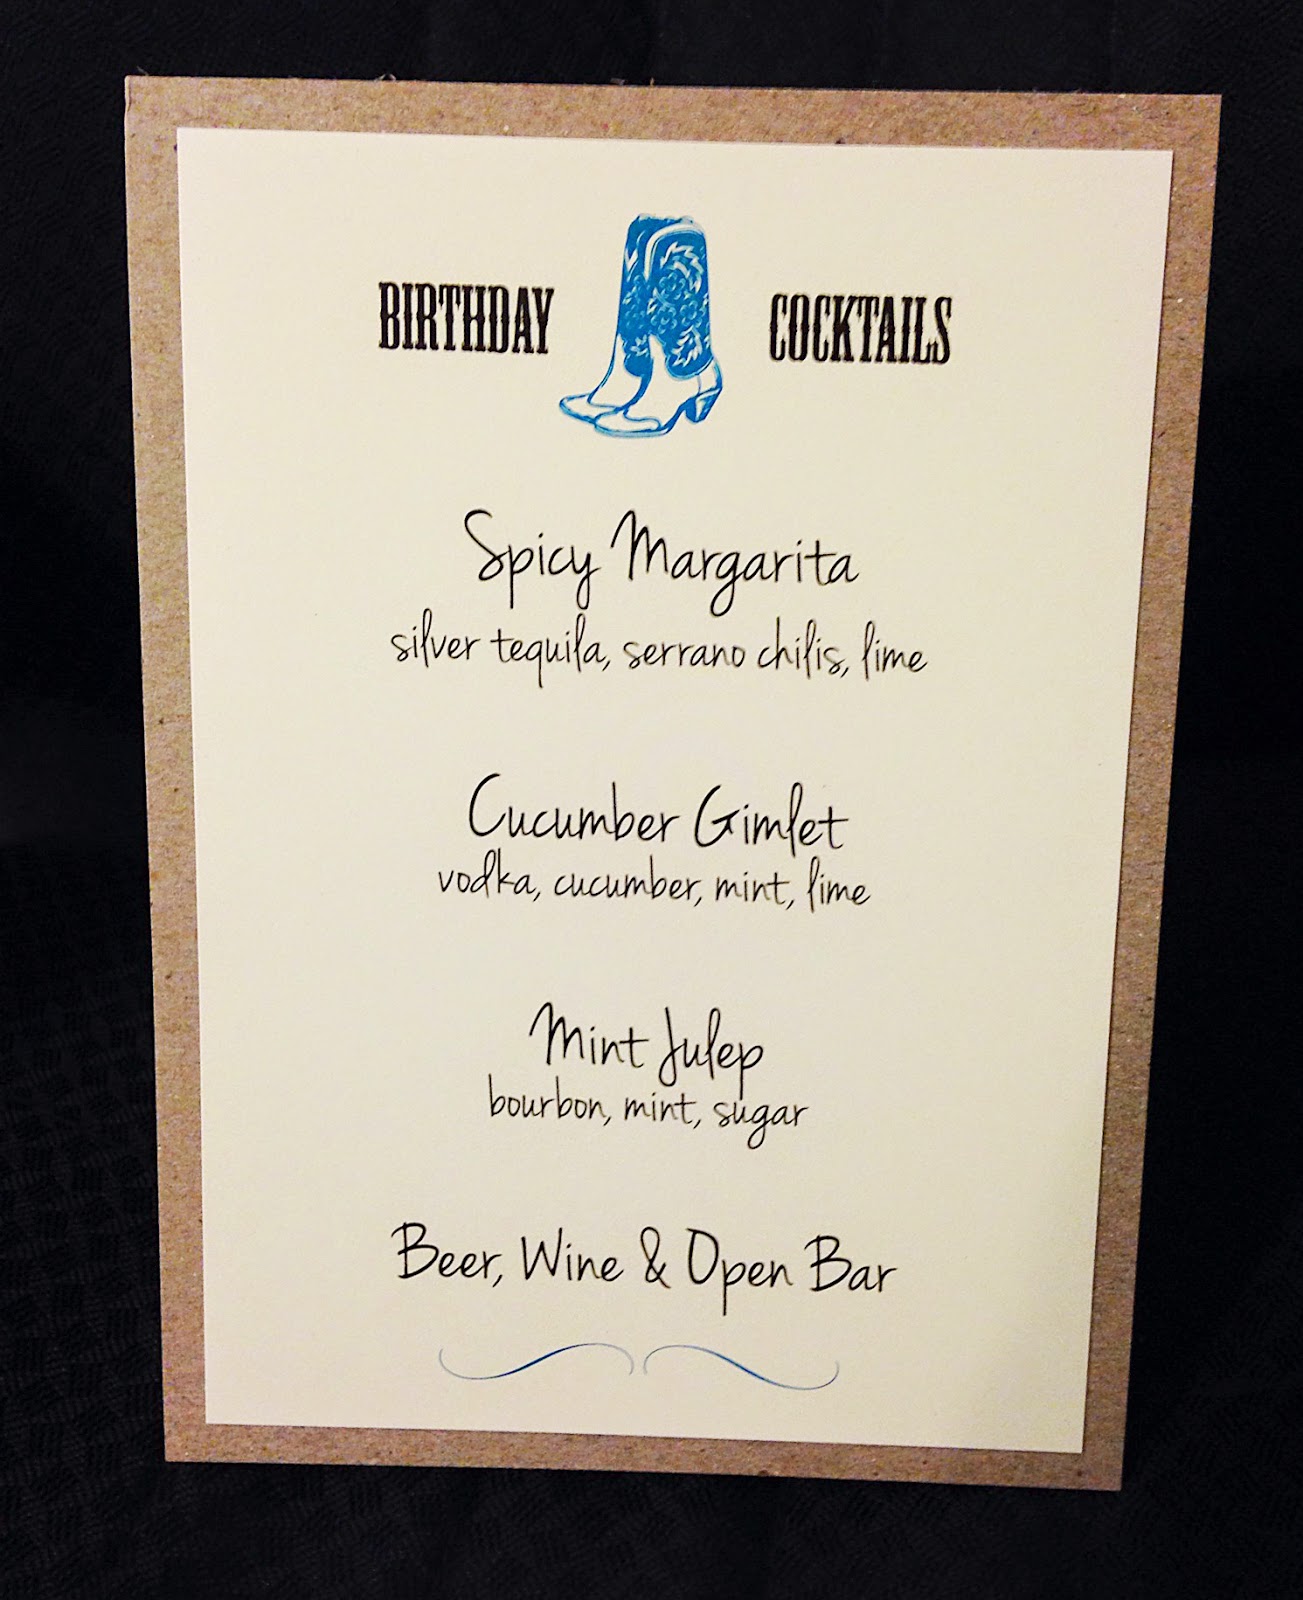 BIRTHDAY COCKTAILS
Spicy Margarita
silver tequila, serrano chilis, lime
Cucumber Gimlet
vodka, cucumber, mint, lime
Mint Julep
bourbon, mint, sugar
Beer, Wine & Open Bar